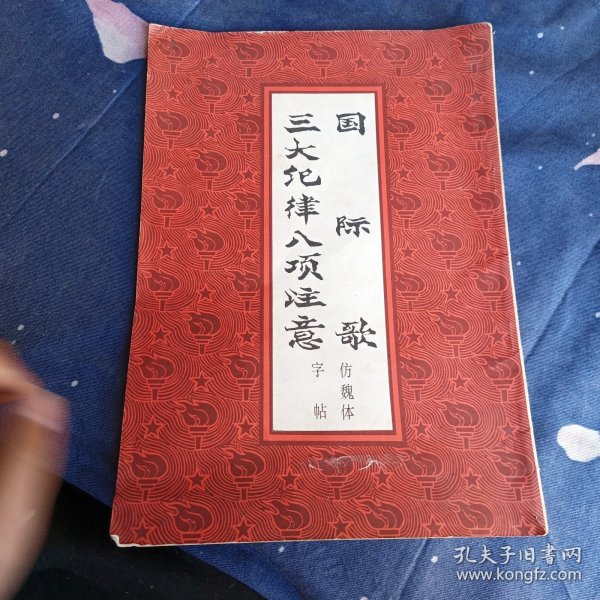 国际歌
三大纪律八项注意
仿魏体
字帖
孔夫子旧书网
www.kongfz.com